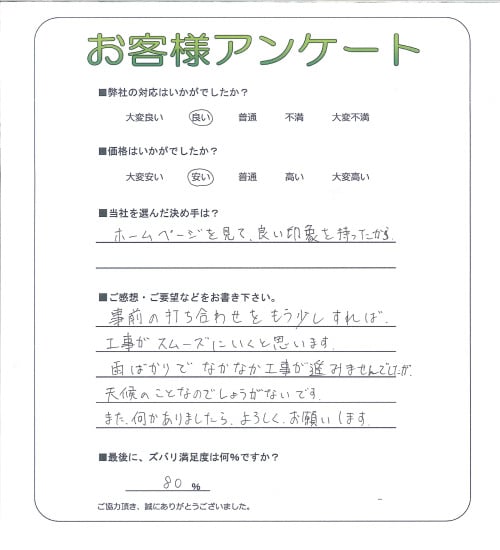 お客様アンケート
■弊社の対応はいかがでしたか？
大変良い 良い 普通 不満 大変不満
■価格はいかがでしたか？
大変安い 安い 普通 高い 大変高い
■当社を選んだ決め手は？
ホームページを見て、良い印象を持ったから.
■ご感想・ご要望などをお書き下さい。
事前の打ち合わせをもう少しすれば、
工事がスムーズにいくと思います.
雨ばかりでなかなか工事が進みませんでしたが.
天候のことなのでしょうがないです.
また、何かありましたら、よろしく、お願いします.
■最後に、ズバリ満足度は何%ですか？
80 %
ご協力頂き、誠にありがとうございました。